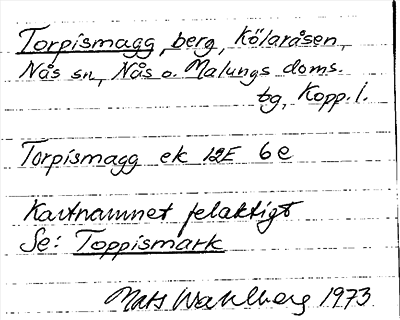 Torpismagg, berg, Kölaråsen,
Nås sn, Nås o. Malungs doms.
tg, Kopp. l.
Torpismagg ek 12E 6e
Kartnamnet felaktigt
Se: Toppismark
Mats Wahlberg 1973